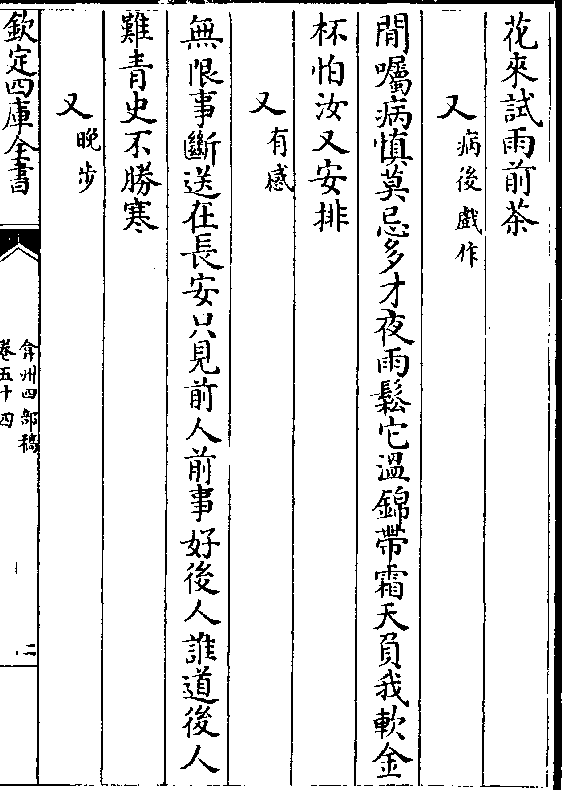 花來試雨前茶
又病後戲作
閒囑病慎莫忌多才夜雨鬆它溫錦帶霜天負我軟金
杯怕汝又安排
又有感
無限事斷送在長安只見前人前事好後人誰道後人
難青史不勝寒
又晚步
欽定四庫全書
弇州四部稿
卷五十四
二